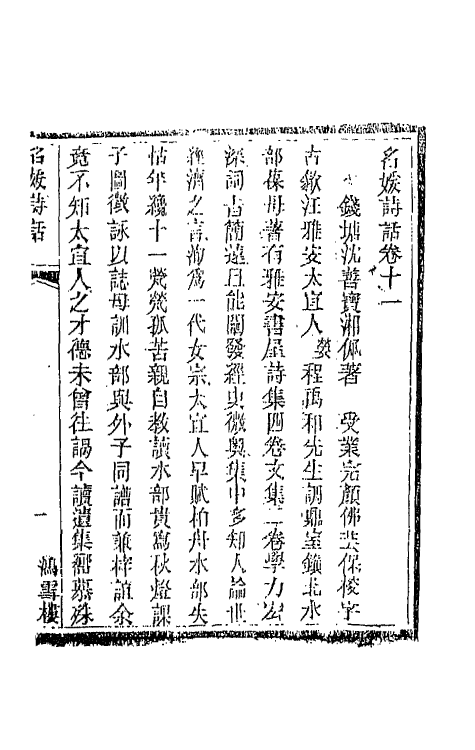 名媛詩話卷十一
錢塘沈善寶湘佩著 受業完顏佛芸保校字
古歙汪雅安太宜人嫈程禹和先生調鼎室鎮北水
部葆母著有雅安書屋詩集四卷文集二卷學力宏
深詞旨簡遠且能闡發經史微奧集中多知人論世
經濟之言洵爲一代女宗太宜人早賦柏舟水部失
怙年纔十一煢煢孤苦親自教讀水部貴寫秋燈課
子圖徵詠以誌母訓水部與外子同譜而兼梓誼余
竟不知太宜人之才德未曾往謁今讀遺集嚮慕殊
名媛詩話
一
鴻雪樓